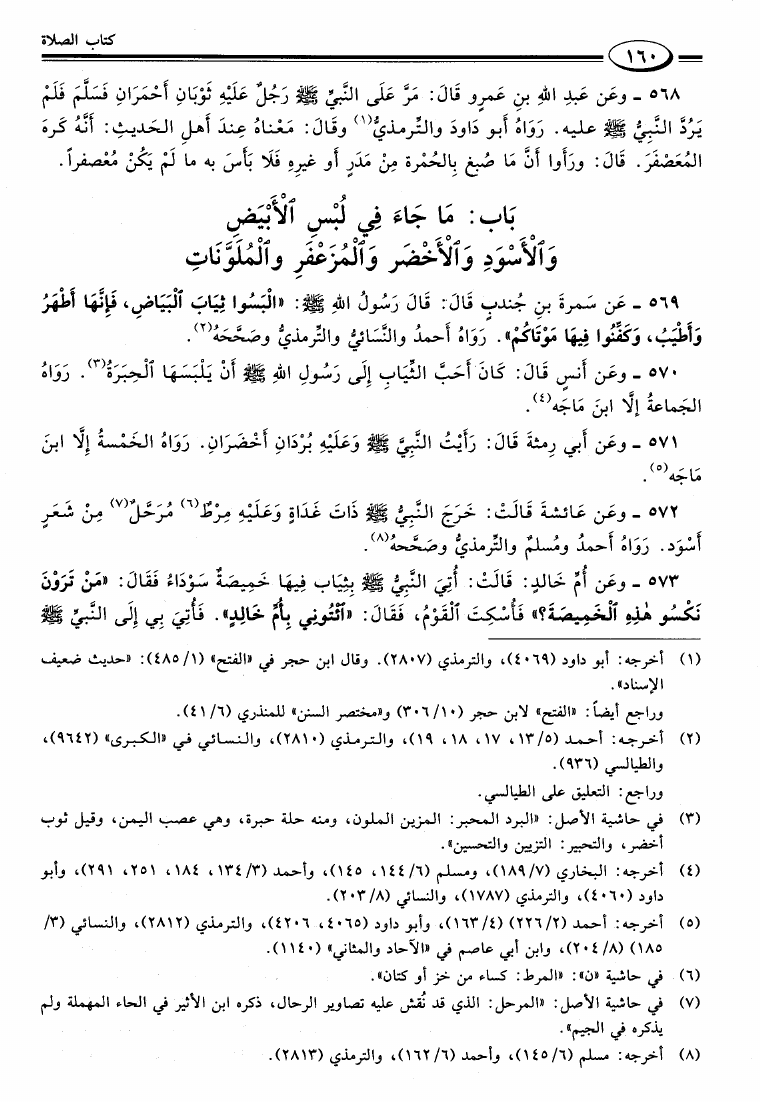 كتاب الصلاة
١٦٠
٥٦٨ ـ وعَن عَبدِ اللهِ بنِ عَمرٍو قَالَ: مَرَّ عَلَى النَّبِيِّ ﷺ رَجُلٌ عَلَيْهِ ثَوْبَانِ أَحْمَرَانِ فَسَلَّمَ فَلَمْ
يَرُدَّ النَّبِيُّ ﷺ عليه. رَوَاهُ أبو دَاودَ والتِّرمذيُّ(١) وقَالَ: مَعْناهُ عِندَ أهلِ الحَديثِ: أَنَّهُ كَرِهَ
المُعَصْفَرَ. قَالَ: ورَأَوا أنَّ مَا صُبغ بِالحُمْرة مِنْ مَدَرٍ أو غيرِهِ فَلَا بَأسَ به ما لَمْ يَكُنْ مُعْصفراً.
بَاب: مَا جَاءَ فِي لُبْسِ الْأَبْيَضِ
وَالْأَسْوَدِ وَالْأَخْضَرِ وَالْمُزَعْفَرِ والْمُلَوَّنَاتِ
٥٦٩ ـ عَن سَمرةَ بنِ جُندبٍ قَالَ: قَالَ رَسُولُ اللهِ ﷺ: «الْبَسُوا ثِيَابَ الْبَيَاضِ، فَإِنَّهَا أَطْهَرُ
وَأَطْيَبُ، وَكَفِّنُوا فِيهَا مَوْتَاكُمْ». رَوَاهُ أحمدُ والنَّسَائيُّ والتِّرمذيُّ وصَحَّحَهُ(٢).
٥٧٠ ـ وعَن أنسٍ قَالَ: كَانَ أَحَبَّ الثِّيَابِ إِلَى رَسُولِ اللهِ ﷺ أَنْ يَلْبَسَهَا الْحِبَرَةُ(٣). رَوَاهُ
الجَماعةُ إلَّا ابنَ مَاجَه(٤).
٥٧١ ـ وعَن أبي رِمثةَ قَالَ: رَأَيْتُ النَّبِيَّ ﷺ وَعَلَيْهِ بُرْدَانِ أَخْضَرَانِ. رَوَاهُ الخَمْسةُ إلَّا ابنَ
مَاجَه(٥).
٥٧٢ ـ وعَن عَائشةَ قَالَتْ: خَرَجَ النَّبِيُّ ﷺ ذَاتَ غَدَاةٍ وَعَلَيْهِ مِرْطٌ(٦) مُرَحَّلٌ(٧) مِنْ شَعَرٍ
أَسْوَد. رَوَاهُ أحمدُ ومُسلمٌ والتِّرمذيُّ وصَحَّحهُ(٨).
٥٧٣ ـ وعَن أُمِّ خالدٍ: قَالَتْ: أُتِيَ النَّبِيُّ ﷺ بِثِيَاب فِيهَا خَمِيصَةٌ سَوْدَاءُ فَقَالَ: «مَنْ تَرَوْنَ
نَكْسُو هَذِهِ الْخَمِيصَةَ؟» فَأُسْكِتَ الْقَوْمُ، فَقَالَ: «ائْتُونِي بِأُمِّ خَالِدٍ». فَأُتِيَ بِي إِلَى النَّبِيِّ ﷺ
(١) أخرجه: أبو داود (٤٠٦٩)، والترمذي (٢٨٠٧). وقال ابن حجر في «الفتح» (٤٨٥/١): «حديث ضعيف
الإسناد».
وراجع أيضاً: «الفتح» لابن حجر (٣٠٦/١٠) و«مختصر السنن» للمنذري (٤١/٦).
(٢) أخرجه: أحمد (١٣/٥، ١٧، ١٨، ١٩)، والترمذي (٢٨١٠)، والنسائي في «الكبرى» (٩٦٤٢)،
والطيالسي (٩٣٦).
وراجع: التعليق على الطيالسي.
(٣) في حاشية الأصل: «البرد المحبر: المزين الملون، ومنه حلة حبرة، وهي عصب اليمن، وقيل ثوب
أخضر، والتحبير: التزيين والتحسين».
(٤) أخرجه: البخاري (١٨٩/٧)، ومسلم (١٤٤/٦، ١٤٥)، وأحمد (١٣٤/٣، ١٨٤، ٢٥١، ٢٩١)، وأبو
داود (٤٠٦٠)، والترمذي (١٧٨٧)، والنسائي (٢٠٣/٨).
(٥) أخرجه: أحمد (٢٢٦/٢) (١٦٣/٤)، وأبو داود (٤٠٦٥، ٤٢٠٦)، والترمذي (٢٨١٢)، والنسائي (٣/
١٨٥) (٢٠٤/٨)، وابن أبي عاصم في «الآحاد والمثاني» (١١٤٠).
(٦) في حاشية «ن»: «المرط: كساء من خز أو كتان».
(٧) في حاشية الأصل: «المرحل: الذي قد نُقش عليه تصاوير الرحال، ذكره ابن الأثير في الحاء المهملة ولم
يذكره في الجيم».
(٨) أخرجه: مسلم (١٤٥/٦)، وأحمد (١٦٢/٦)، والترمذي (٢٨١٣).